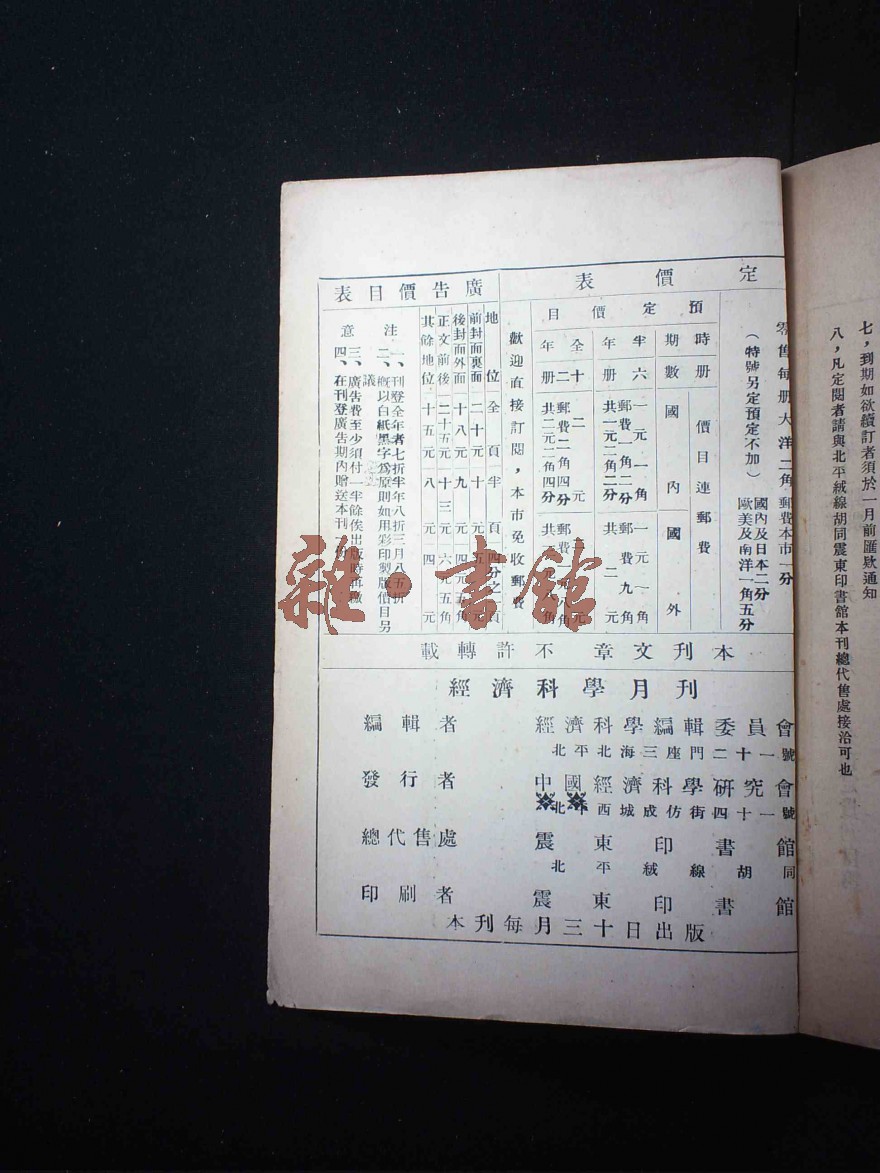 七，到期如欲續訂者須於一月前匯欵通知
八，凡定閱者請與北平絨線胡同震東印書館本刊總代售處接洽可也
定價表
零售每册大洋二角
郵費本市一分
國內及日本二分
歐美及南洋一角五分
（特號另定預定不加）
預定價目
時期
册數
價目連郵費
國內
國外
半年
六册
一元一角
郵費一角二分
共一元二角二分
一元一角
郵費九角
共二元
全年
十二册
二元
郵費二角四分
共二元二角四分
歡迎直接訂閱，本市免收郵費
廣告價目表
地位 全頁 半頁 四分之一頁
前封面裏面 二十元 十元 五元
後封面外面 十八元 九元 四元五角
正文前後 二十五元 十三元 六元五角
其餘地位 十五元 八元 四元
注意
一、刊登全年者七折半年八折三月八五折
二、概以白紙黑字為原則如用彩印製版價目另議
三、廣告費至少須付一半餘俟出版時再繳
四、在刊登廣告期內贈送本刊一份
本刊文章不許轉載
經濟科學月刊
編輯者 經濟科學編輯委員會
北平北海三座門二十一號
發行者 中國經濟科學研究會
北平西城成仿街四十一號
總代售處 震東印書館
北平絨線胡同
印刷者 震東印書館
本刊每月三十日出版
雜·書館